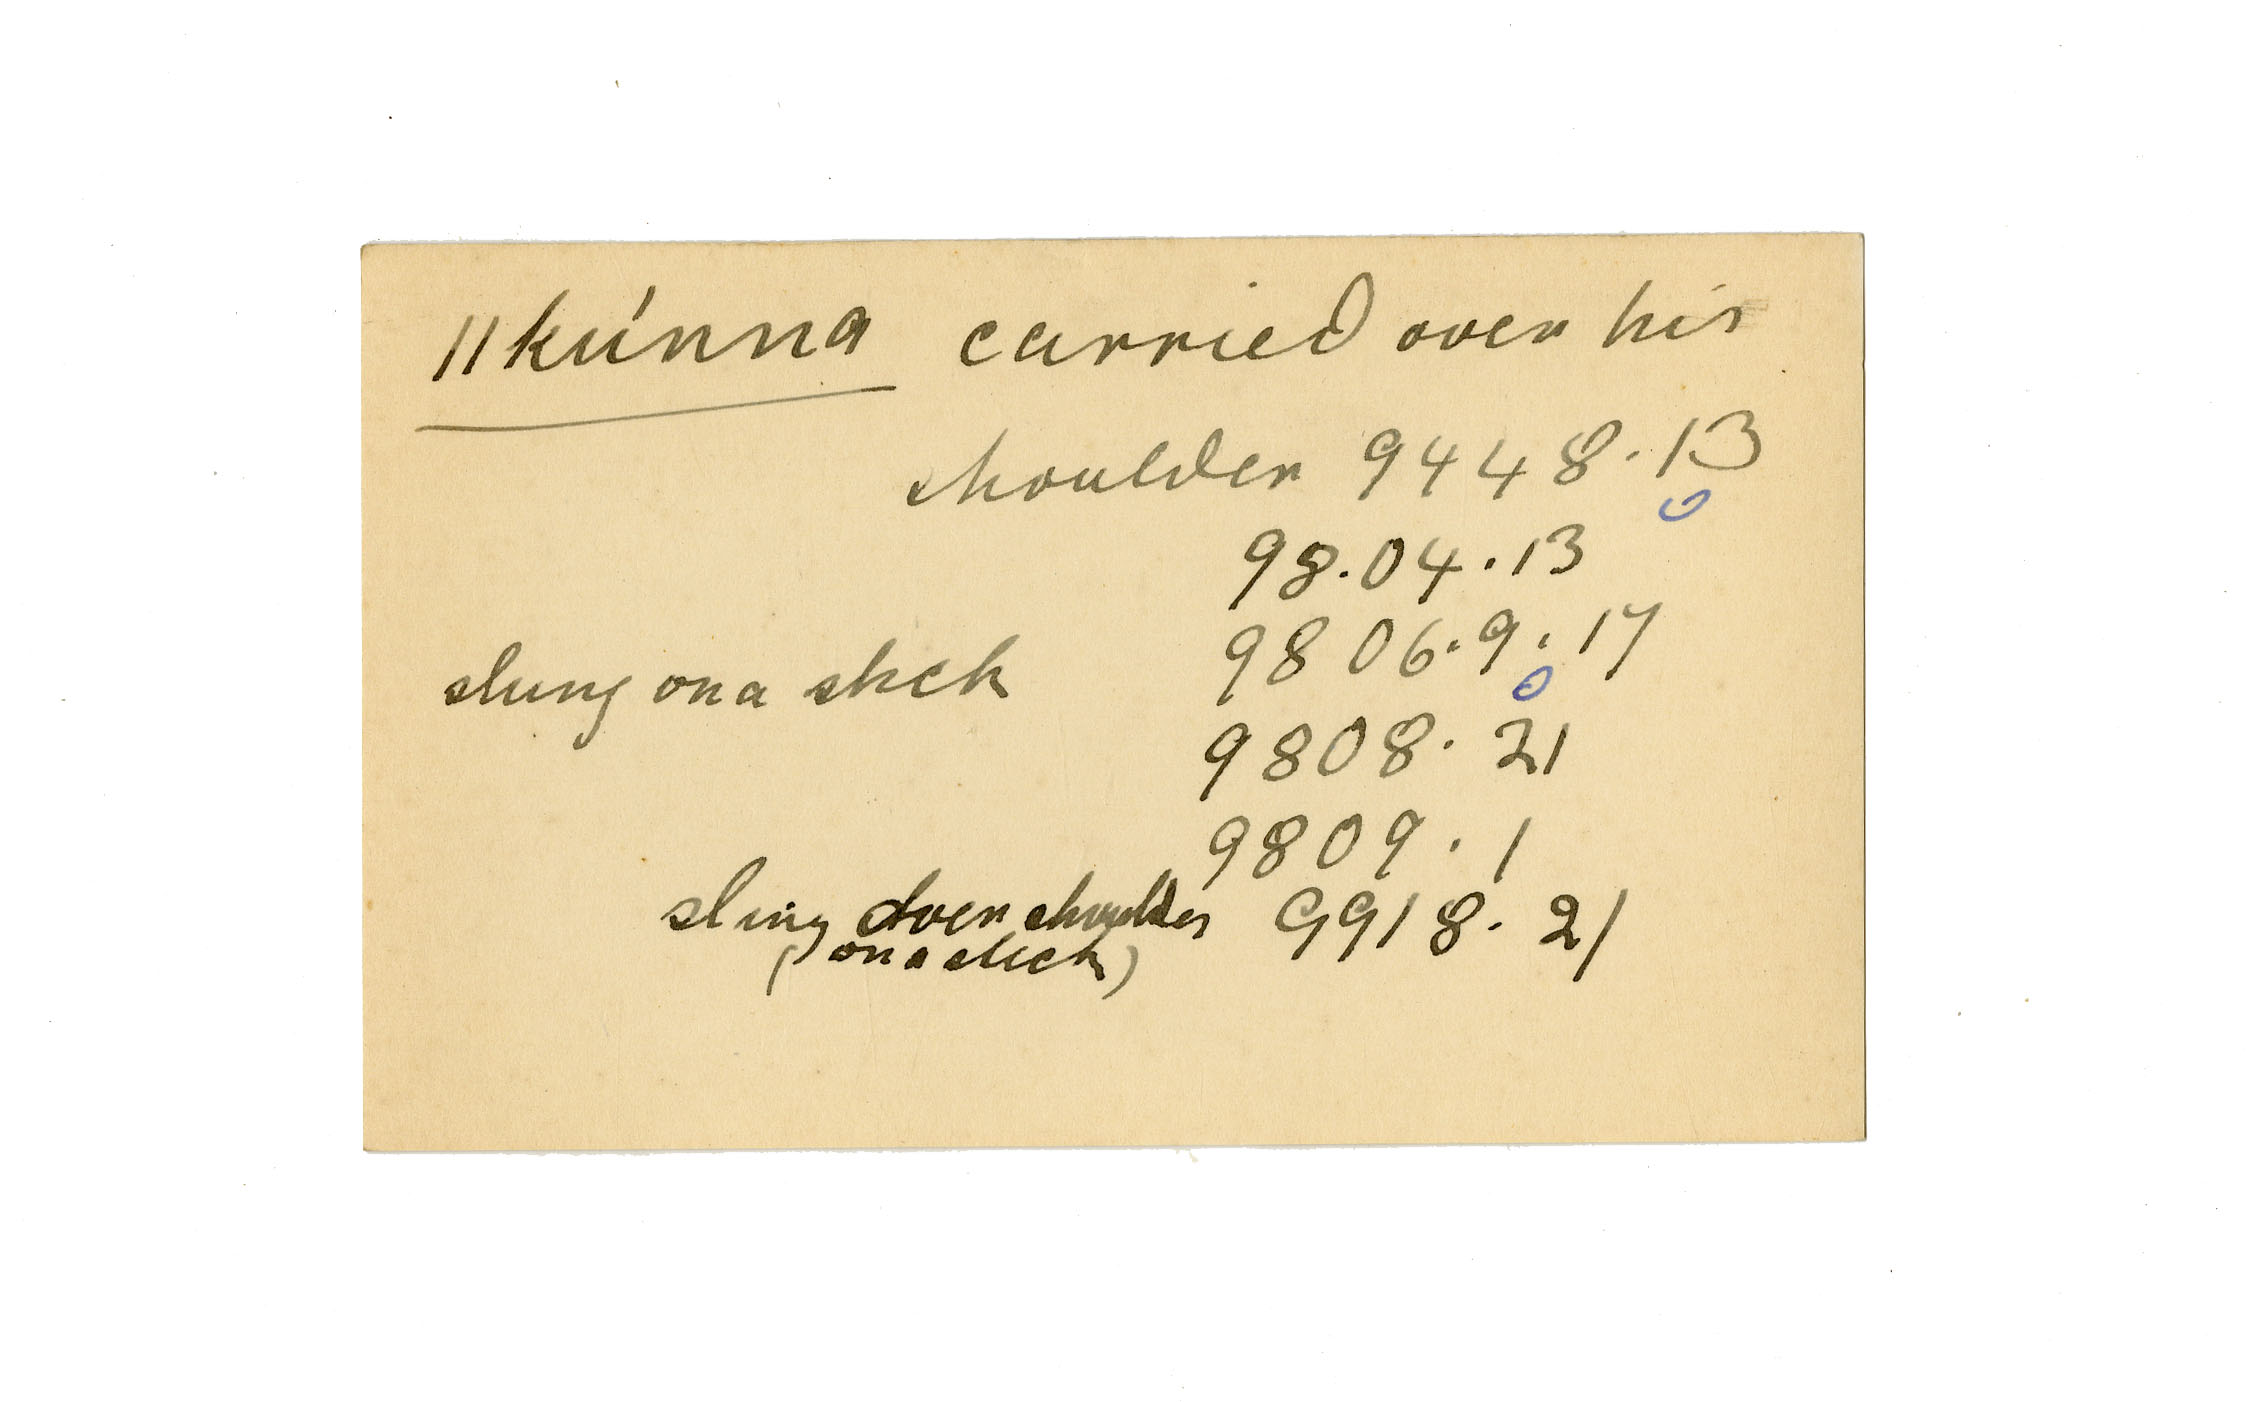 ǁkúnna carried over his
shoulder 9448.13
98.04.13
9806.9.17
slung on a stick
9808.21
9809.1
sling over shoulder 9918.21
(on a stick)